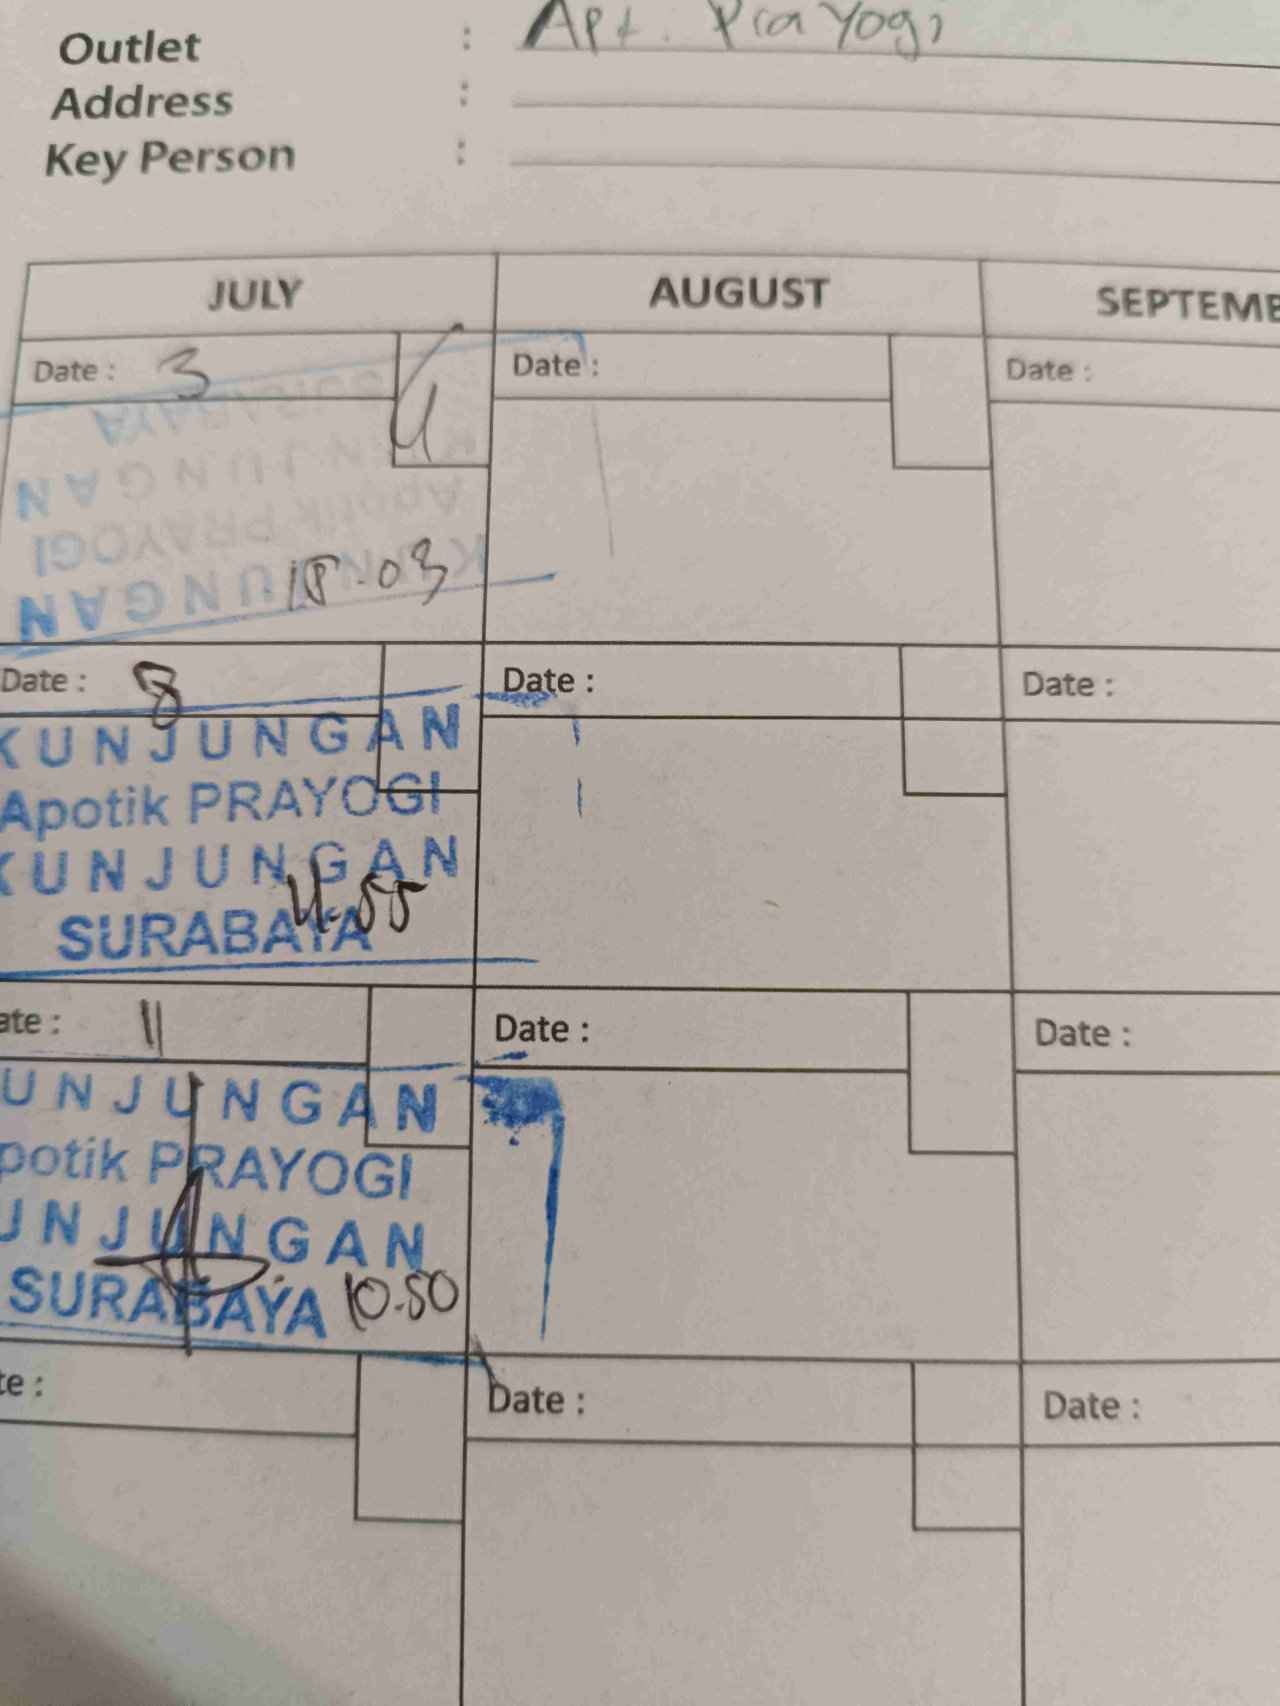 Outlet : Apt. Prayogi
Address :
Key Person :
JULY AUGUST SEPTEMBE
Date : 3 Date : Date :
KUNJUNGAN
Apotik PRAYOGI
KUNJUNGAN
SURABAYA
18.03
Date : 8 Date : Date :
KUNJUNGAN
Apotik PRAYOGI
KUNJUNGAN
SURABAYA
11.55
ate : 11 Date : Date :
UNJUNGAN
potik PRAYOGI
UNJUNGAN
SURABAYA 10.50
te : Date : Date :